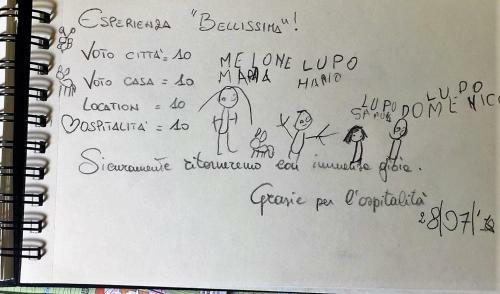 ESPERIENZA "BELLISSIMA"!
VOTO CITTÀ = 10
VOTO CASA = 10
LOCATION = 10
OSPITALITÀ = 10
MELONE LUPO
MARIO
LUPO
LUPO
DOMENICO
Sicuramente ritorneremo con immensa gioia.
Grazie per l'ospitalità
28/07/